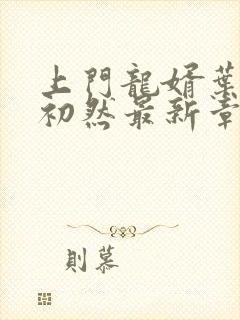 上門龍婿葉
初然最新章
則慕